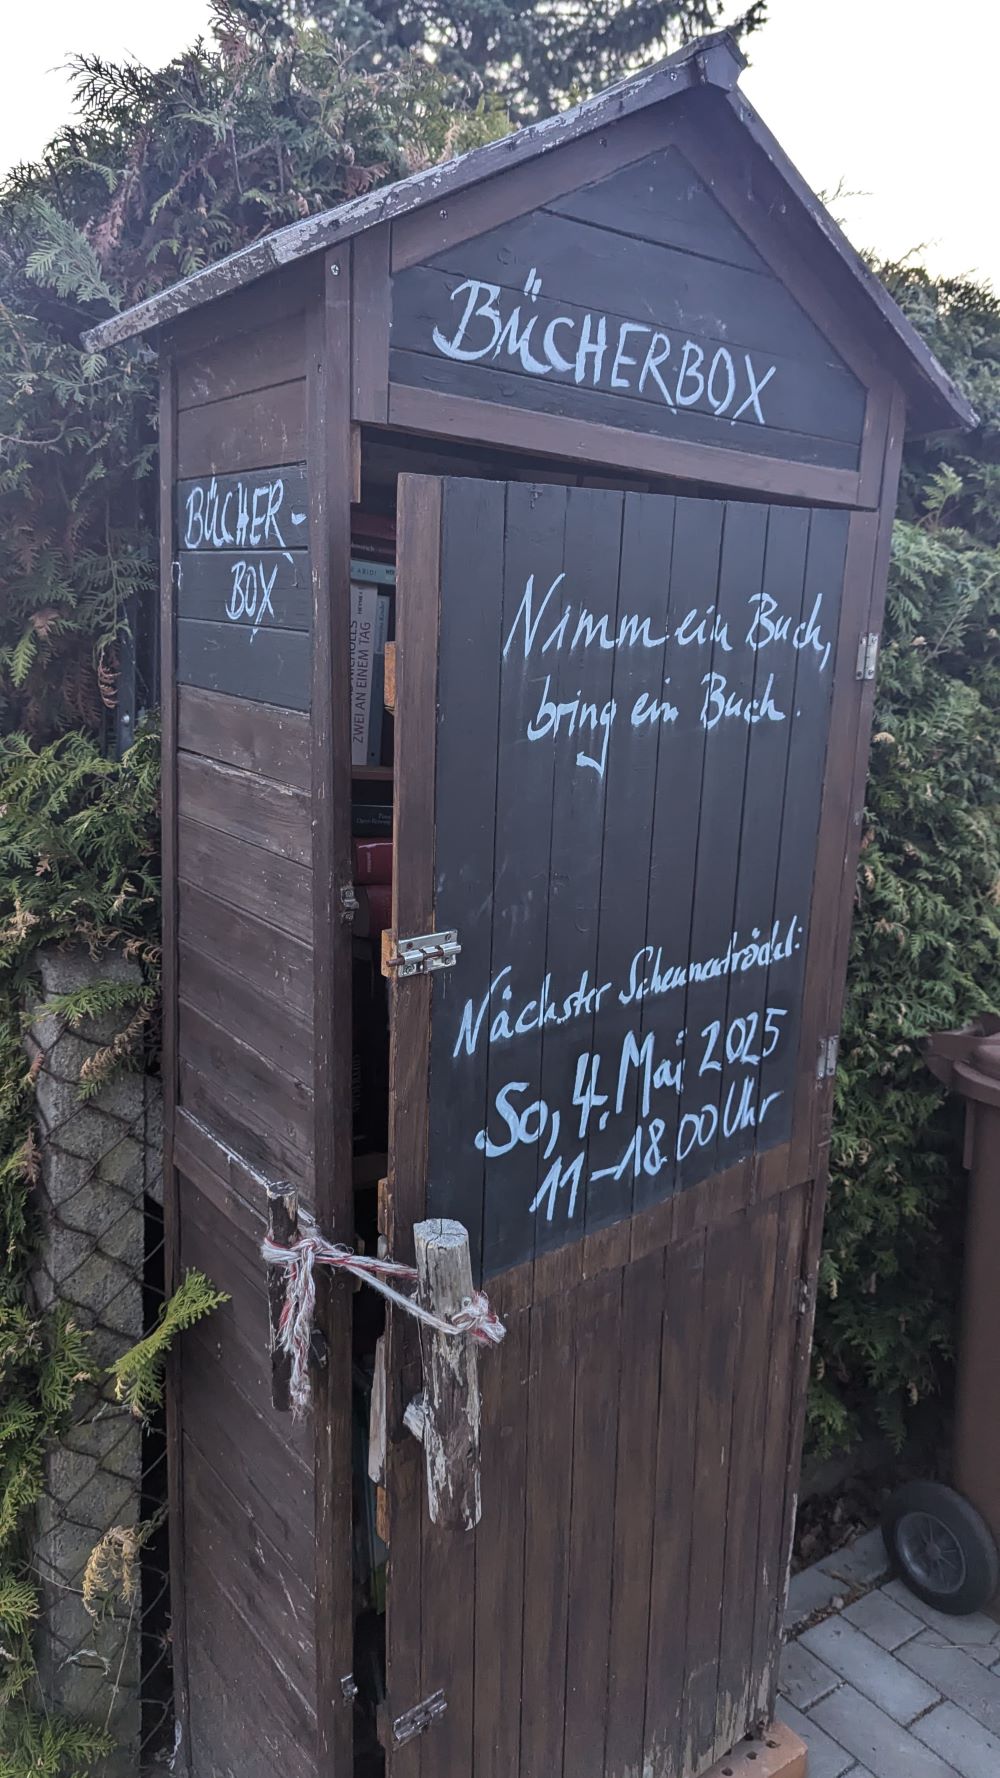 BÜCHERBOX
BÜCHER-
BOX
Nimm ein Buch,
bring ein Buch.
Nächster Scheunentrödel:
So, 4. Mai 2025
11-18.00 Uhr
ZWEI AN EINEM TAG